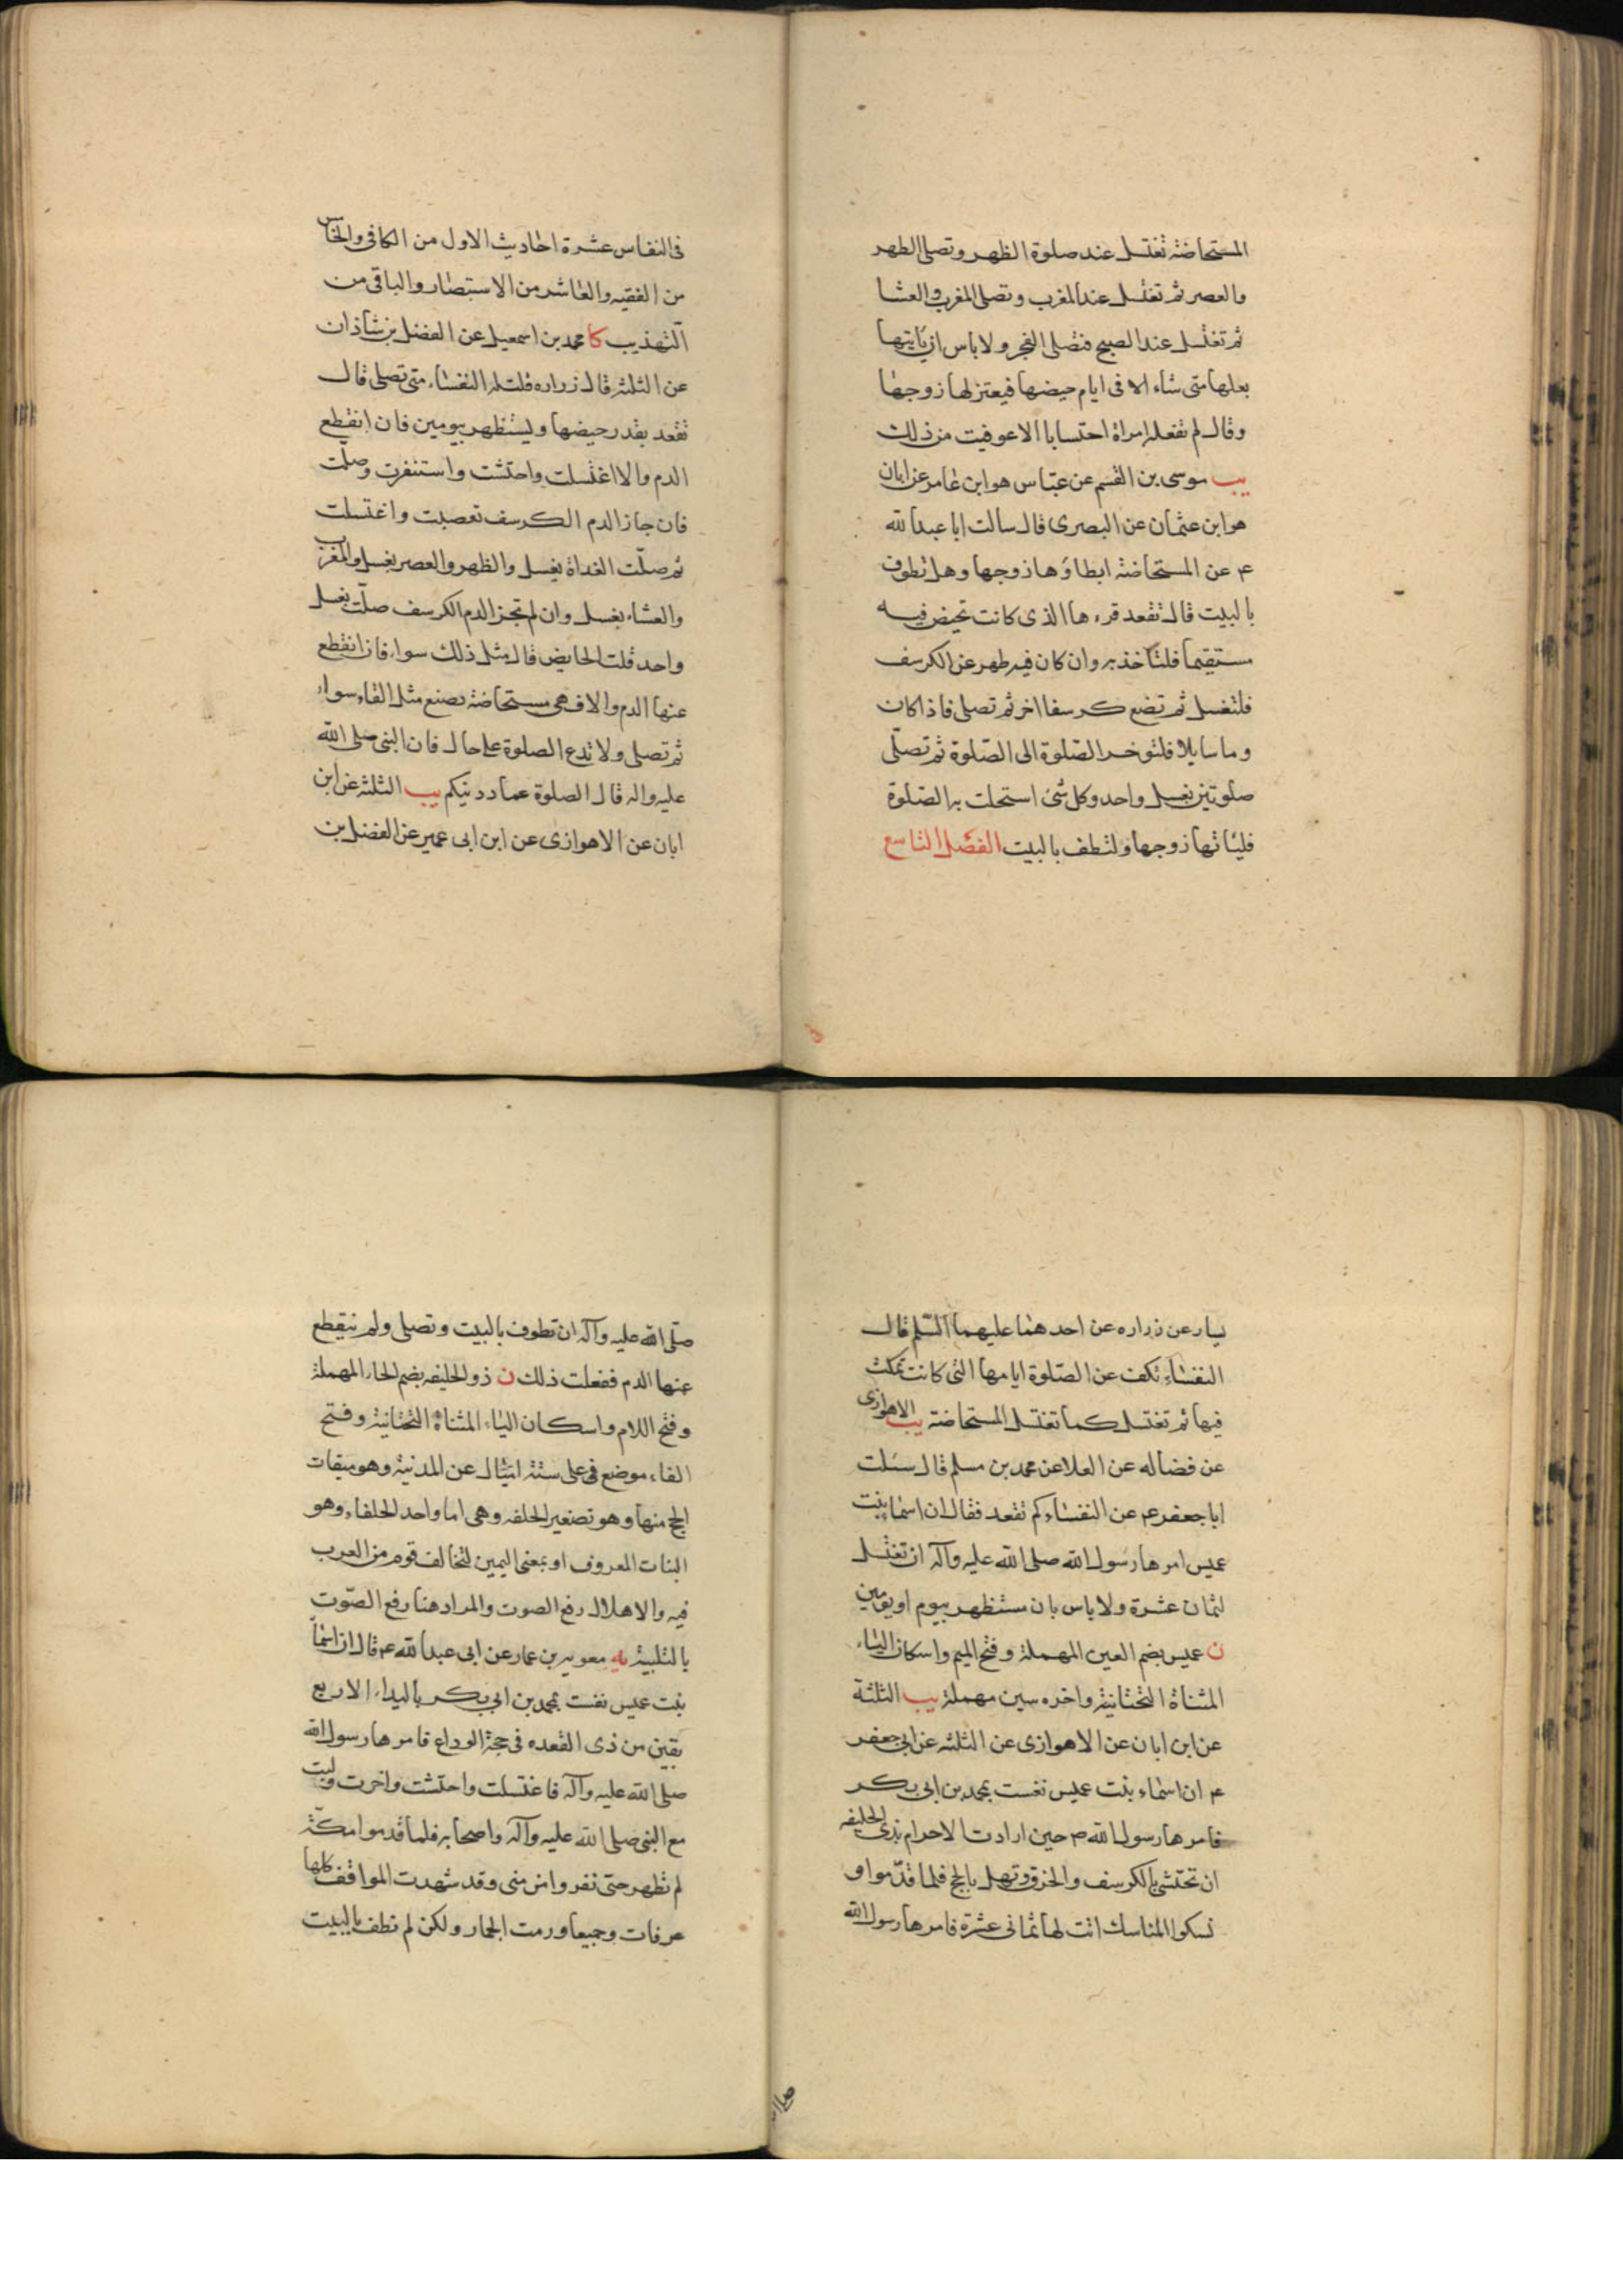 المستحاضة تغتسل عند صلوة الظهر وتصلى الظهر
والعصر ثم تغتسل عند المغرب وتصلى المغرب والعشا
ثم تغتسل عند الصبح فتصلى الفجر ولا باس ان ياتيها
بعلها متى شاء الا فى ايام حيضها فيعتزلها زوجها
وقال لم تفعله امراة احتسابا الا عوفيت من ذلك
يب موسى بن القسم عن عباس هو ابن عامر عن ابان
هو ابن عثمان عن البصرى قال سالت ابا عبد الله
ع عن المستحاضة ايطاؤها زوجها وهل تطوف
بالبيت قال تقعد قرءها الذى كانت تحيض فيه
مستقيما فلتاخذ به وان كان فيه طهر عن الكرسف
فلتغسل ثم تضع كرسفا اخر ثم تصلى فاذا كان
وما سايلا فلتوخر الصّلوة الى الصّلوة ثم تصلّى
صلوتين بغسل واحد وكل شئ استحلت به الصّلوة
فلياتها زوجها ولتطف بالبيت الفصل التاسع
فى النفاس عشرة احاديث الاول من الكافى والخامس
من الفقيه والعاشر من الاستبصار والباقى من
التهذيب كا محمد بن اسمعيل عن الفضل بن شاذان
عن الثلثه قال زراره قلت له النفساء متى تصلى قال
تقعد بقدر حيضها وليستظهر بيومين فان انقطع
الدم والا اغتسلت واحتشت واستنفرت وصلّت
فان جاز الدم الكرسف تعصبت واغتسلت
ثم صلّت الغداة بغسل والظهر والعصر بغسل والمغرب
والعشاء بغسل وان لم تجز الدم الكرسف صلّت بغسل
واحد قلت الحايض قال مثل ذلك سواء فان انقطع
عنها الدم والا فهى مستحاضة تصنع مثل النفاء سواء
ثم تصلى ولا تدع الصلوة على حال فان النبى صلى الله
عليه واله قال الصلوة عماد دينكم يب الثلثه عن ابن
ابان عن الاهوازى عن ابن ابى عمير عن الفضل بن
يسار عن زراره عن احدهما عليهما السّلم قال
النفساء تكف عن الصّلوة ايامها التى كانت تمكث
فيها ثم تغتسل كما تغتسل المستحاضة يب الاهوازى
عن فضاله عن العلا عن محمد بن مسلم قال سئلت
ابا جعفر ع عن النفساء كم تقعد فقال ان اسماء بنت
عميس امرها رسول الله صلى الله عليه وآله ان تغتسل
لثمان عشرة ولا باس بان ستظهر بيوم او يومين
ن عميس بضم العين المهملة وفتح الميم واسكان الياء
المثناة التحتانية واخره سين مهملة يب الثلثة
عن ابن ابان عن الاهوازى عن الثلثه عن ابى جعفر
ع ان اسماء بنت عميس نفست بمحمد بن ابى بكر
فامرها رسول الله ص حين ارادت الاحرام بذى الحليفه
ان تحتشى بالكرسف والخرق وتهل بالحج فلما قدّموا و
نسكوا المناسك اتت لها ثمانى عشرة فامرها رسول الله
صلّى الله عليه وآله ان تطوف بالبيت وتصلى ولم ينقطع
عنها الدم ففعلت ذلك ن ذو الحليفه بضم الحاء المهملة
وفتح اللام واسكان الياء المثناة التحتانية وفتح
الفاء موضع فى على ستة اميال عن المدنية وهو ميقات
الحج منها وهو تصغير الحلفه وهى اما واحد الحلفاء وهو
النبات المعروف او بمعنى اليمين لتحالف قوم من العرب
فيه والاهلال رفع الصوت والمراد هنا رفع الصّوت
بالتلبية يه معويه بن عمار عن ابى عبد الله ع قال ان اسماء
بنت عميس نفست بمحمد بن ابى بكر بالبيداء الاربع
بقين من ذى القعده فى حجة الوداع فامرها رسول الله
صلى الله عليه وآله فاغتسلت واحتشت واخرت ولبت
مع النبى صلى الله عليه وآله واصحابه فلما قدموا مكّة
لم تطهر حتى نفروا من منى وقد شهدت المواقف كلها
عرفات وجميعا ورمت الجمار ولكن لم تطف بالبيت